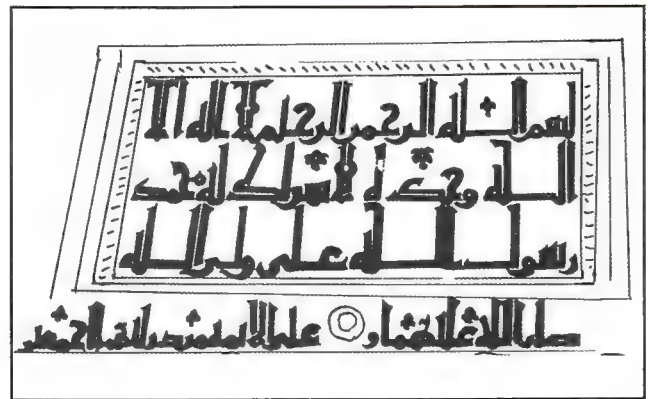 بسم الله الرحمن الرحيم لا اله الا
الله وحده لا شريك له محمد
رسول الله علي ولي الله
صلى الله عليهما و على الا اجمعين